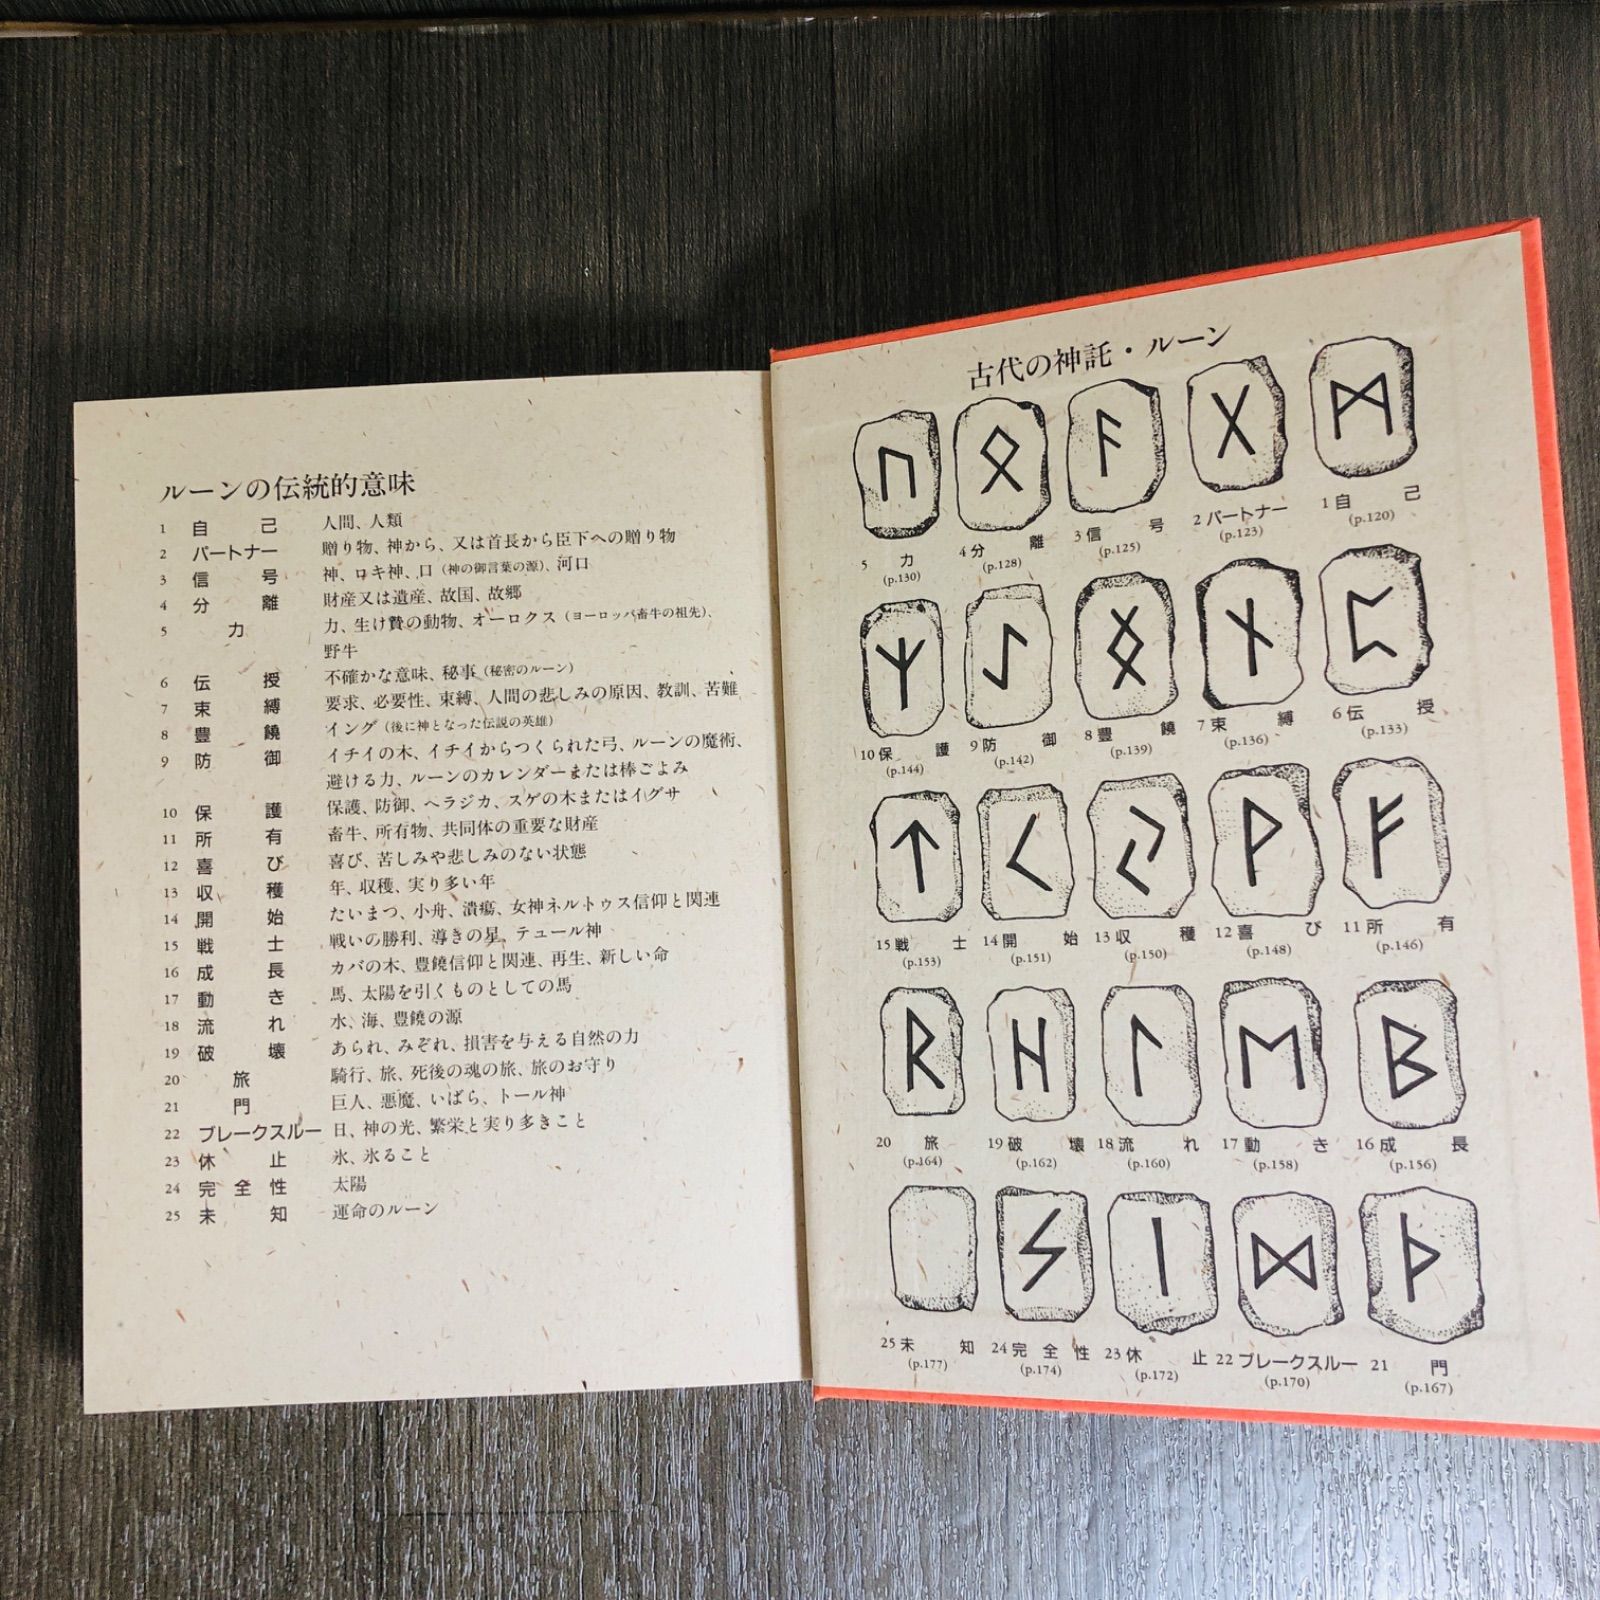 ルーンの伝統的意味
1 自己 人間、人類
2 パートナー 贈り物、神から、又は首長から臣下への贈り物
3 信号 神、ロキ神、口(神の御言葉の源)、河口
4 分離 財産又は遺産、故国、故郷
5 力 力、生け贄の動物、オーロクス(ヨーロッパ畜牛の祖先)、
野牛
6 伝授 不確かな意味、秘事(秘密のルーン)
7 束縛 要求、必要性、束縛、人間の悲しみの原因、教訓、苦難
8 豊饒 イング(後に神となった伝説の英雄)
9 防御 イチイの木、イチイからつくられた弓、ルーンの魔術、
避ける力、ルーンのカレンダーまたは棒ごよみ
10 保護 保護、防御、ヘラジカ、スゲの木またはイグサ
11 所有 畜牛、所有物、共同体の重要な財産
12 喜び 喜び、苦しみや悲しみのない状態
13 収穫 年、収穫、実り多い年
14 開始 たいまつ、小舟、潰瘍、女神ネルトゥス信仰と関連
15 戦士 戦いの勝利、導きの星、テュール神
16 成長 カバの木、豊饒信仰と関連、再生、新しい命
17 動き 馬、太陽を引くものとしての馬
18 流れ 水、海、豊饒の源
19 破壊 あられ、みぞれ、損害を与える自然の力
20 旅 騎行、旅、死後の魂の旅、旅のお守り
21 門 巨人、悪魔、いばら、トール神
22 ブレークスルー 日、神の光、繁栄と実り多きこと
23 休止 氷、氷ること
24 完全性 太陽
25 未知 運命のルーン
古代の神託・ルーン
ᚢ ᛟ ᚨ ᚷ ᛗ
5 力 4 分離 3 信号 2 パートナー 1 自己
(p.130) (p.128) (p.125) (p.123) (p.120)
ᛉ ᛇ ᛜ ᚾ ᛈ
10 保護 9 防御 8 豊饒 7 束縛 6 伝授
(p.144) (p.142) (p.139) (p.136) (p.133)
ᛏ ᚲ ᛃ ᚹ ᚠ
15 戦士 14 開始 13 収穫 12 喜び 11 所有
(p.153) (p.151) (p.150) (p.148) (p.146)
ᚱ ᚺ ᛚ ᛖ ᛒ
20 旅 19 破壊 18 流れ 17 動き 16 成長
(p.164) (p.162) (p.160) (p.158) (p.156)
ᛊ ᛁ ᛞ ᚦ
25 未知 24 完全性 23 休止 22 ブレークスルー 21 門
(p.177) (p.174) (p.172) (p.170) (p.167)